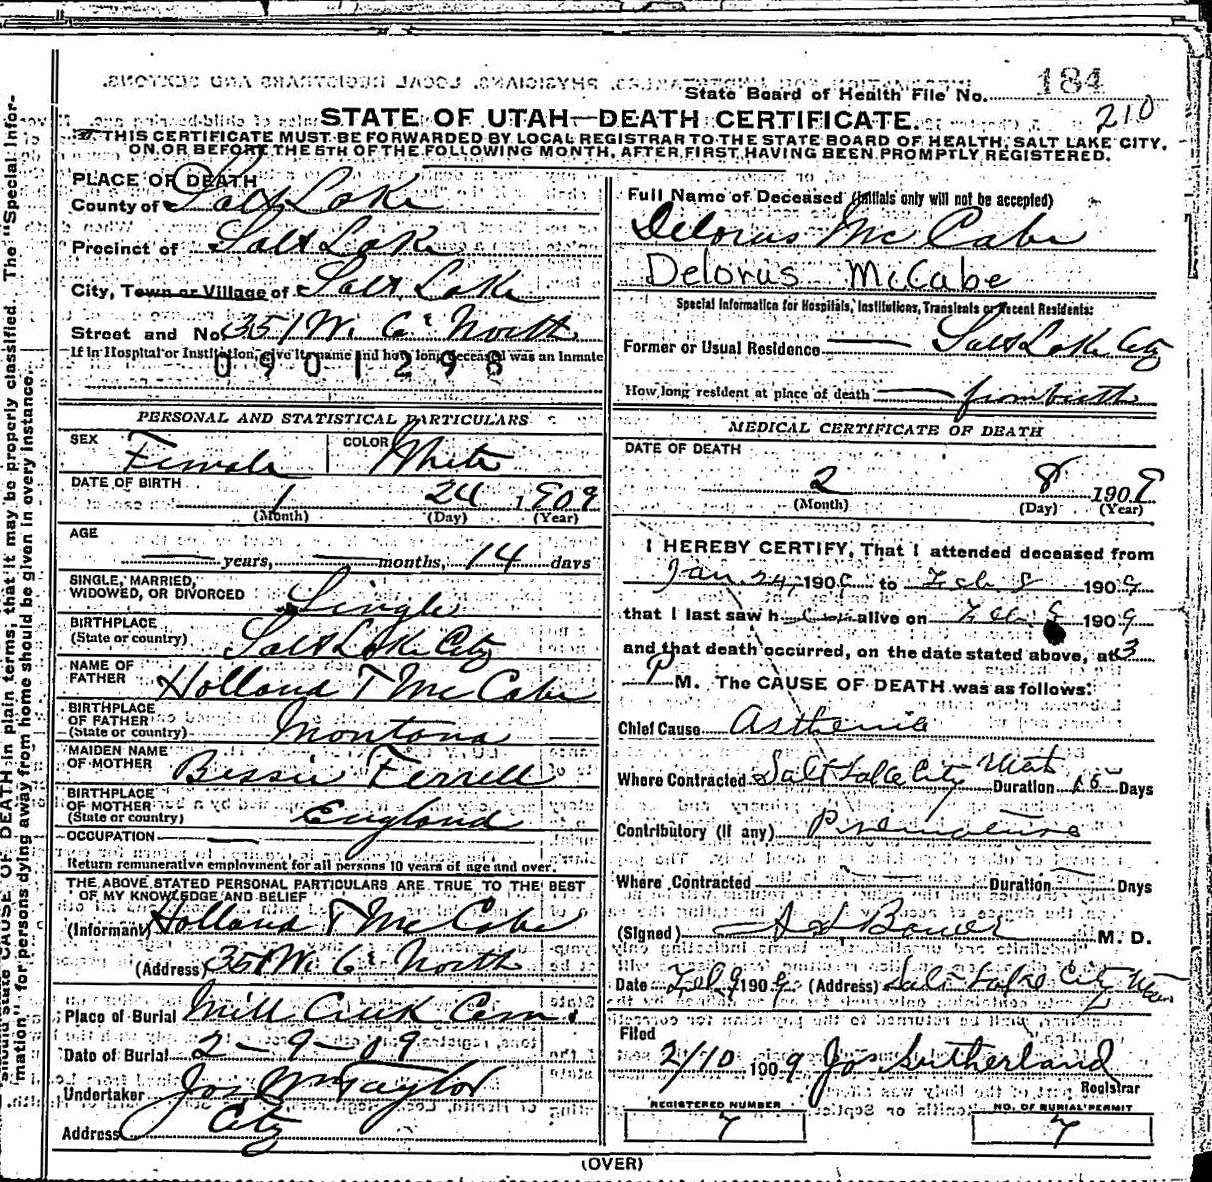 State Board of Health File No. 184
210
STATE OF UTAH—DEATH CERTIFICATE.
THIS CERTIFICATE MUST BE FORWARDED BY LOCAL REGISTRAR TO THE STATE BOARD OF HEALTH, SALT LAKE CITY,
ON OR BEFORE THE 5TH OF THE FOLLOWING MONTH, AFTER FIRST HAVING BEEN PROMPTLY REGISTERED.
PLACE OF DEATH
County of Salt Lake
Precinct of Salt Lake
City, Town or Village of Salt Lake
Street and No. 351 W. 6" North
If in Hospital or Institution, give its name and how long deceased was an Inmate
0901298
PERSONAL AND STATISTICAL PARTICULARS
SEX Female COLOR White
DATE OF BIRTH 1 24 1909
(Month) (Day) (Year)
AGE
years, months, 14 days
SINGLE, MARRIED,
WIDOWED, OR DIVORCED Single
BIRTHPLACE
(State or country) Salt Lake City
NAME OF
FATHER Holland T McCabe
BIRTHPLACE
OF FATHER
(State or country) Montana
MAIDEN NAME
OF MOTHER Bessie Ferrell
BIRTHPLACE
OF MOTHER
(State or country) England
OCCUPATION
Return remunerative employment for all persons 10 years of age and over.
THE ABOVE STATED PERSONAL PARTICULARS ARE TRUE TO THE BEST
OF MY KNOWLEDGE AND BELIEF
(Informant) Holland T McCabe
(Address) 351 W. 6" North
Place of Burial Mill Creek Cem.
Date of Burial 2-9-09
Undertaker Jos Wm Taylor
Address City
Full Name of Deceased (Initials only will not be accepted)
Delorus McCabe
Delorus McCabe
Special Information for Hospitals, Institutions, Transients or Recent Residents:
Former or Usual Residence Salt Lake City
How long resident at place of death from birth
MEDICAL CERTIFICATE OF DEATH
DATE OF DEATH
2 8 1909
(Month) (Day) (Year)
I HEREBY CERTIFY, That I attended deceased from
Jan 24, 1909 to Feb 8 1909
that I last saw h alive on Feb 8 1909
and that death occurred, on the date stated above, at 3
P M. The CAUSE OF DEATH was as follows:
Chief Cause Asthenia
Where Contracted Salt Lake City Utah Duration 15 Days
Contributory (if any) Premature
Where Contracted Duration Days
(Signed) Bower M. D.
Date Feb 9 1909 (Address) Salt Lake City Utah
Filed
2/10 1909 Jos Sutherland
Registrar
REGISTERED NUMBER
7
NO. OF BURIAL PERMIT
7
(OVER)
should state CAUSE OF DEATH in plain terms, that it may be properly classified. The "Special Infor-
mation" for persons dying away from home should be given in every instance.